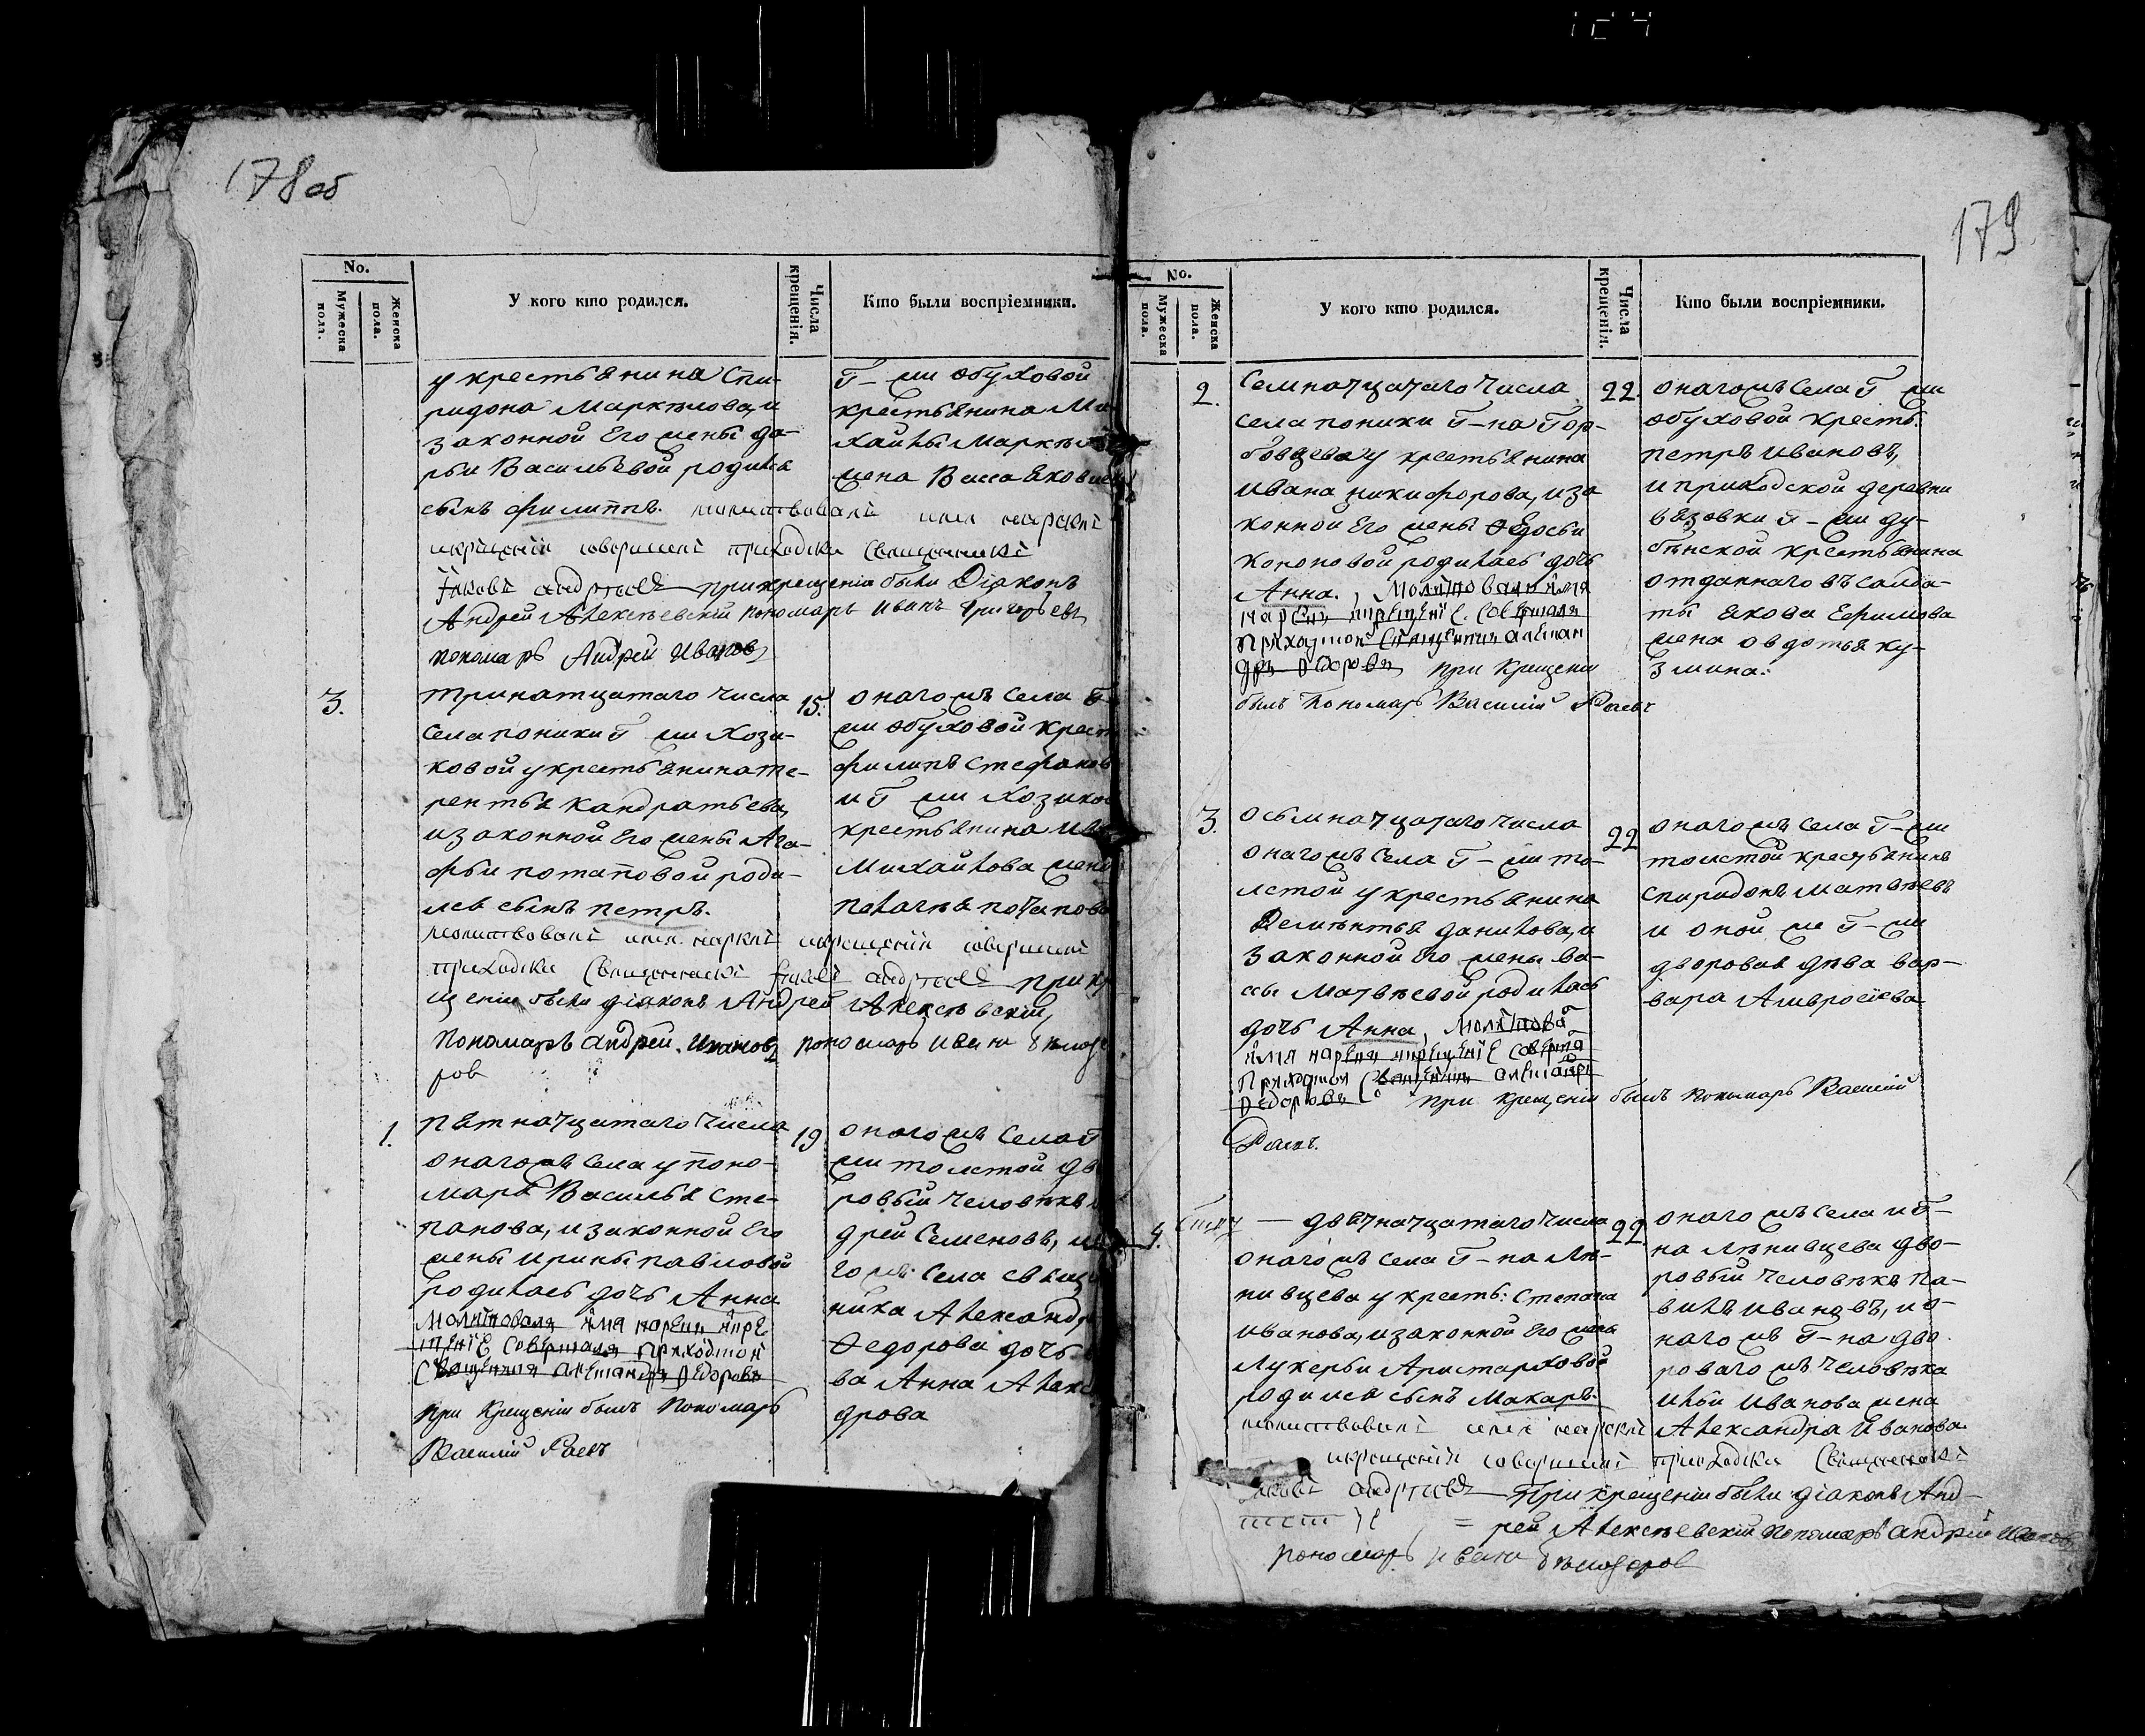 178 об
No.
Мужеска пола.
Женска пола.
У кого кто родился.
Числа крещенія.
Кто были воспріемники.
у крестьянина Спи-
ридона Маркелова, и
законной его жены да-
рьи Васильевой родился
сынъ филиппъ. молитвовалъ имя нарекъ
и крещеніе совершилъ приходски Священникъ
Іаковъ андреевъ при крещеніи были Діаконъ
Андрей Алексеевскій пономарь Иванъ Григорьевъ
пономарь Андрей Ивановъ
Г-жи обуховой
крестьянина Ми
хайлы Маркел
жена Васса яковле
3.
тринатцатаго числа
села поники Г жи Хози-
ковой у крестьянина Те-
рентья кандратьева,
и законной его жены Ага-
фьи потаповой роди-
лся сынъ петръ.
молитвовалъ имя нарекъ и крещеніе совершилъ
приходски Священникъ Іаковъ андреевъ при кр
щеніи были діаконъ Андрей Алексеевскій,
пономаръ андрей Ивановъ пономарь Иванъ
ров
15.
онагожъ села Г-
жи обуховой крест
филипъ Стефанов
и Г жи Хозико
крестьянина Ив
Михайлова жена
пелагея потапова
1.
пятнатцатаго числа
онагожъ села у поно-
маря Василья Сте-
панова, и законной его
жены ирины павловой
родилась дочь Анна
молитвовалъ имя нарекъ и кре
щеніе совершалъ приходской
Священникъ александръ Федоровъ
при крещеніи былъ пономарь
Василій Раевъ
19
онагожъ села Г
жи толстой дв
ровый человекъ
дрей Семеновъ, и
гожъ села свящ
ника Александр
Федорова дочь
ва Анна Алекс
дрова
179.
No.
Мужеска пола.
Женска пола.
У кого кто родился.
Числа крещенія.
Кто были воспріемники.
2.
Семнатцатаго числа
села поники Г-на Гор-
бовцева у крестьянина
ивана никифорова, и за
конной его жены Федосьи
кононовой родилась дочь
Анна., молитвовалъ имя
нарекъ и крещеніе совершалъ
приходской Священникъ алексан
дръ Федоровъ при крещеніи
былъ пономарь Василій Раевъ
22.
онагожъ села Г жи
обуховой кресть:
петръ ивановъ,
и приходской деревни
вязовки Г-жи ду-
бенской крестьянина
отданнаго въ салда-
ты якова Ефимова
жена овдотья ку-
змина.
3.
осьмнатцатаго числа
онагожъ села Г-жи то-
лстой у крестьянина
Дементья данилова, и
законной его жены ва-
ссы Матвеевой родилась
дочь Анна, молитвова
имя нарекъ и крещеніе соверша
приходской Священникъ александръ
Федоровъ при крещеніи былъ пономарь Василій
Раевъ.
22
онагожъ села Г-жи
толстой крестьянинъ
Спиридонъ Матвеевъ
и оной же Г-жи
дворовая дева вар-
вара Амвросіева
4.
двятнатцатаго числа
онагожъ села Г-на Ле-
нивцева у кресть: Степана
иванова, и законной его жены
Лукерьи Аристарховой
родился сынъ Макаръ.
молитвовалъ имя нарекъ
и крещеніе совершилъ приходски Священникъ
Іаковъ андреевъ при крещеніи были діаконъ Анд-
рей Алексеевскій пономарь андрей Ивановъ
пономарь Иванъ
22.
онагожъ села и Г-
на Ленивцева дво-
ровый человекъ па-
вилъ ивановъ, и о-
нагожъ Г-на дво-
ровагожъ человека
ильи иванова жена
Александра иванова